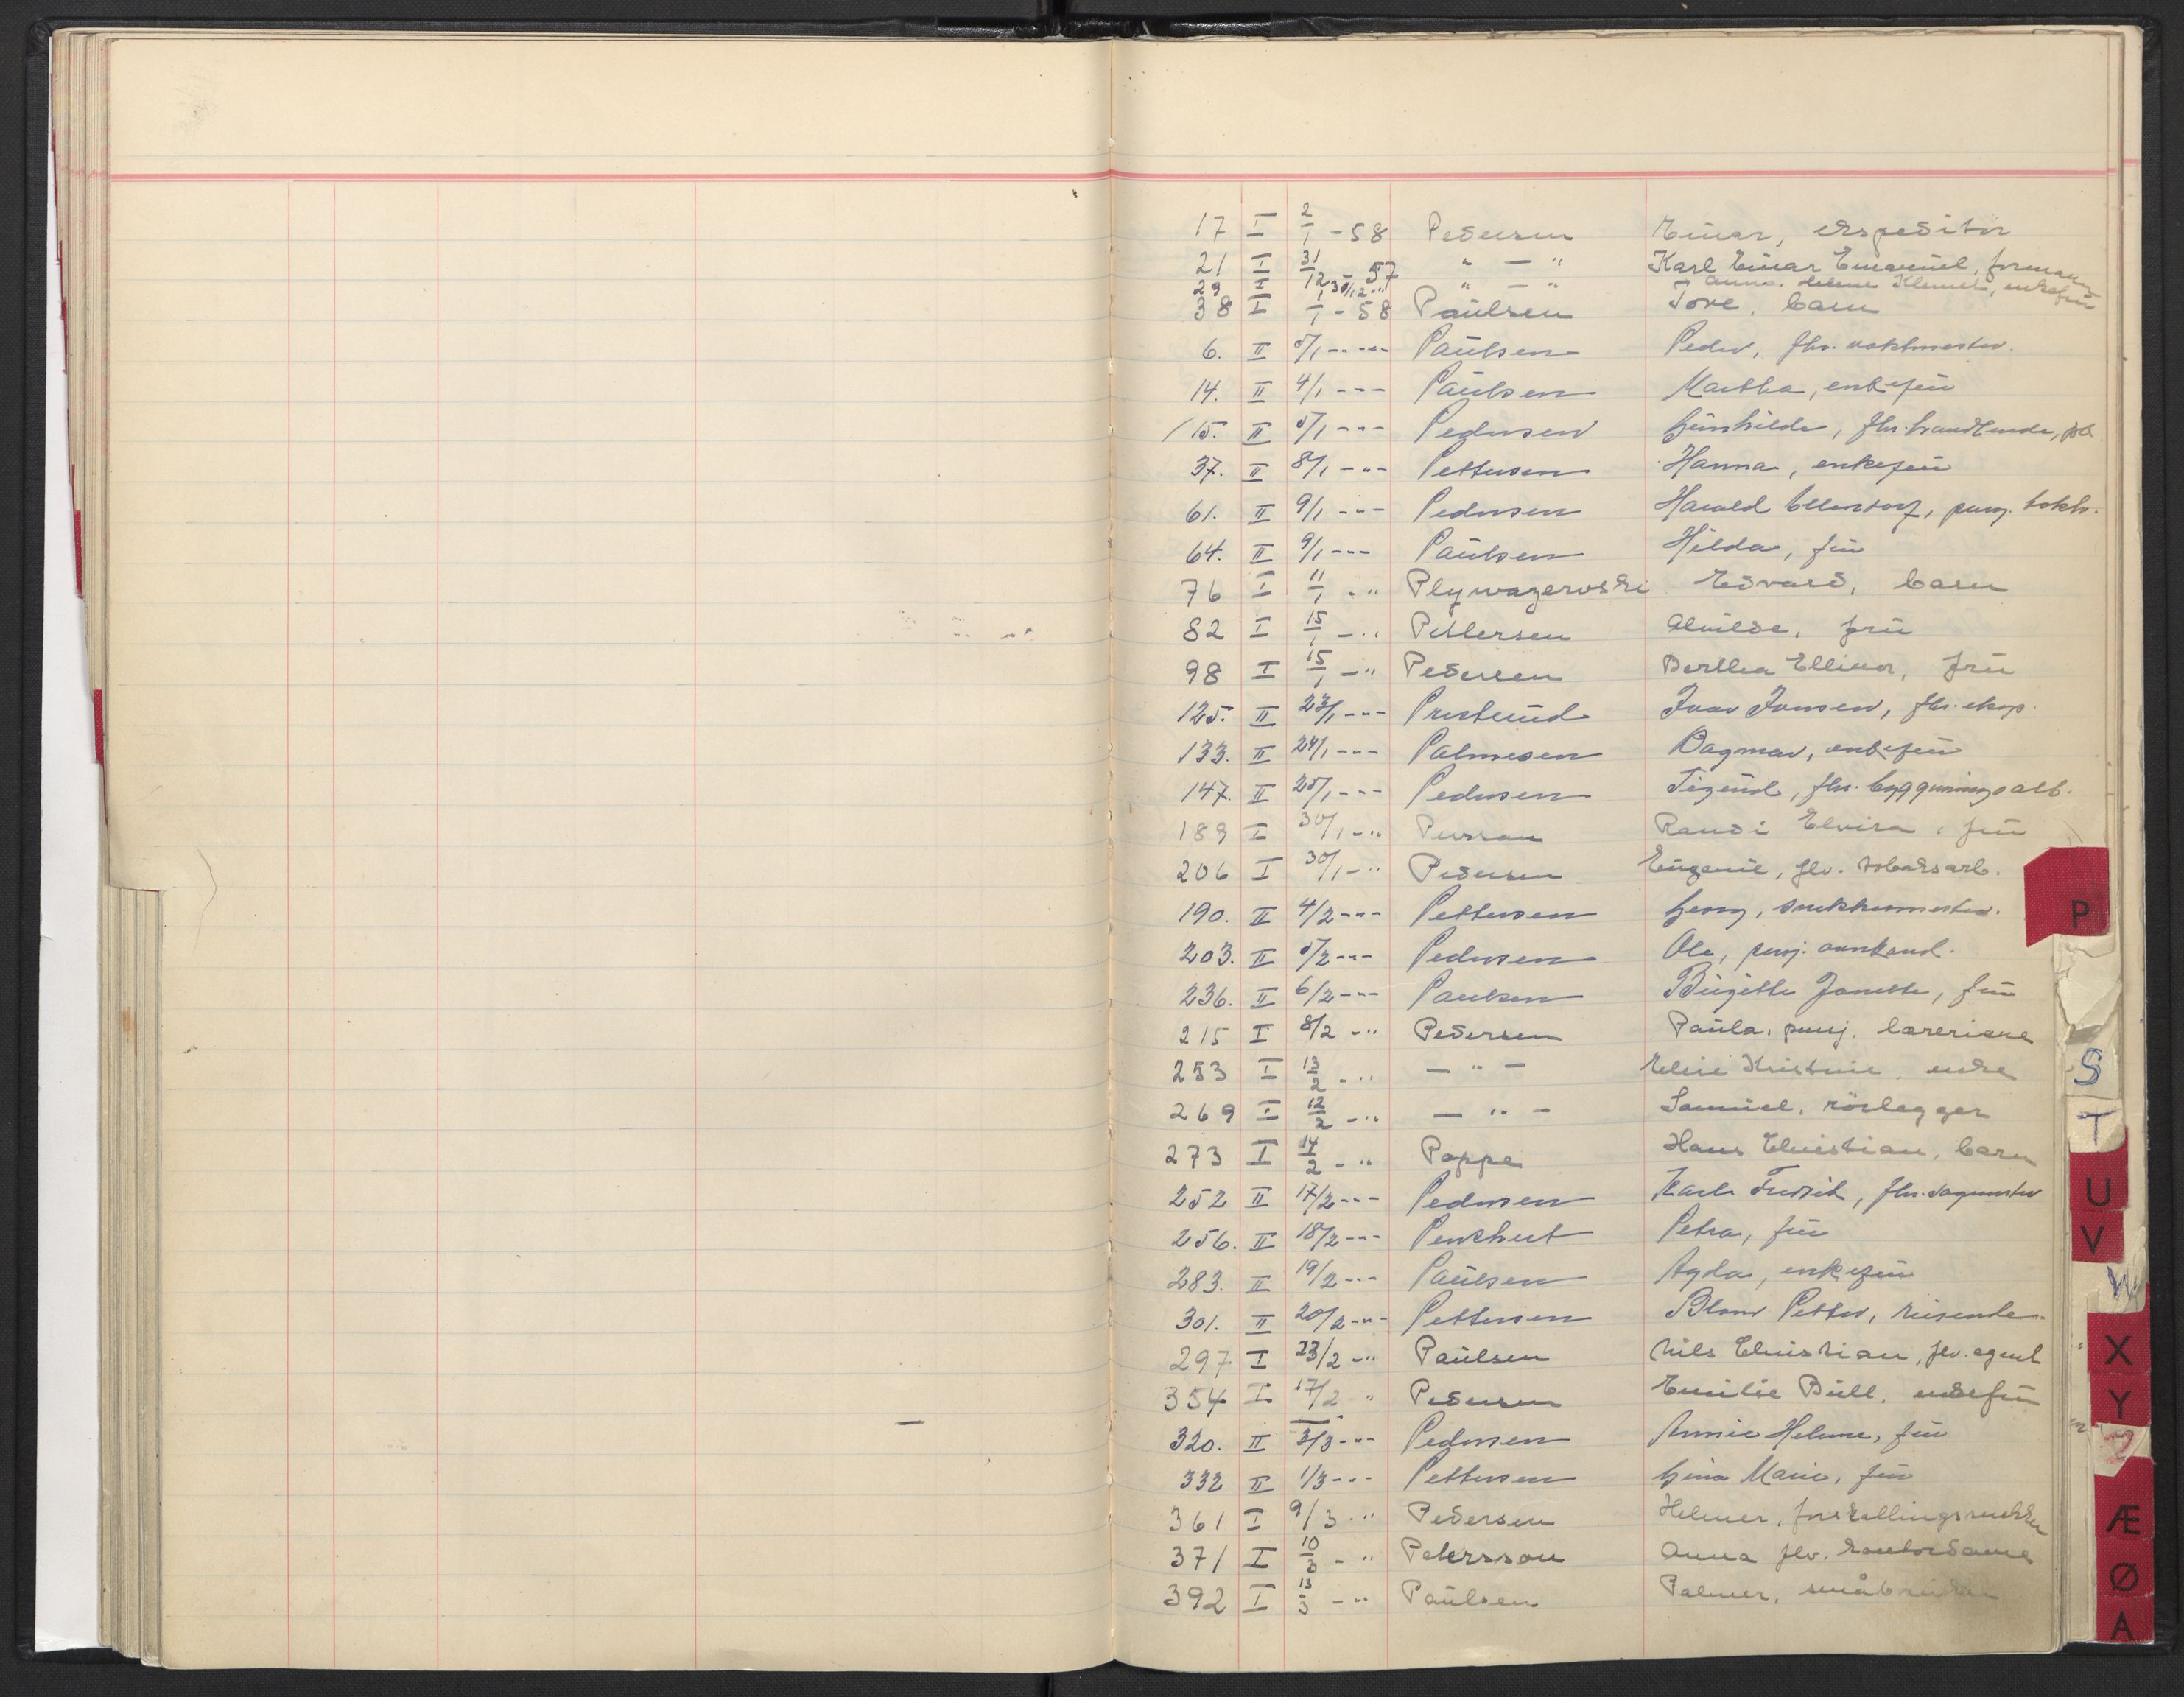 17 I 2/1 - 58 Pedersen Einar, ekspeditör
21 I 31/12 57 " — " Karl Einar Emanuel, formann
29 I 30/12 - " " — " Anna Helene Klemet, enkefru
38 I 1/1 - 58 Paulsen Tove, barn
6. II 5/1 - " - Paulsen Peder, fhv. vaktmester.
14. II 4/1 - " - Paulsen Martha, enkefru
15. II 5/1 - " - Pedersen Gunhilda, fhv. handlende,
37. II 8/1 - " - Pettersen Hanna, enkefru
61. II 9/1 - " - Pedersen Harald Ellendorf, pensj.
64. II 9/1 - " - Paulsen Hilda, fru
76 I 11/1 - " Plywazerwski Edvard, barn
82 I 15/1 - " Pettersen Alvilde, fru
98 I 15/1 - " Pedersen Bertha Ellinor, fru
125. II 23/1 - " - Presterud Ivar Jonsen, fhv. eksp.
133. II 24/1 - " - Palmesen Dagmar, enkefru
147. II 25/1 - " - Pedersen Sigurd, fhv. bygningsarb.
189 I 30/1 - " Persson Randi Elvira, fru
206 I 30/1 - " Pedersen Eugenie, flv. tobaksarb.
190. II 4/2 - " - Pettersen Georg, snekkermester.
203. II 5/2 - " - Pedersen Ole, pensj.
236. II 6/2 - " - Paulsen Birgitte Janette, fru
215 I 8/2 - " Pedersen Paula, pensj. lærerinne
253 I 13/2 - " — " — Kristine, enke
269 I 12/2 - " — " — Samuel, rörlegger
273 I 14/2 - " Poppe Hans Christian, barn
252 II 17/2 - " - Pedersen Karl Fredrik, fhv.
256. II 18/2 - " - Penchert Petra, fru
283. II 19/2 - " - Paulsen Agda, enkefru
301. II 20/2 - " - Pettersen Petter, reisende.
297 I 23/2 - " Paulsen Nils Christian, flv. agent
354 I 17/2 " Pedersen Emilie Bull, enkefru
320. II 3/3 - " - Pedersen Annie Helene, fru
332 II 1/3 - " - Pettersen Gina Marie, fru
361 I 9/3 - " Pedersen Helmer, forskallingssnekker
371 I 10/3 - " Petersson Anna flv. kontordame
392 I 13/3 - " Paulsen Palmer, småbruker
P
S
T
U
V
W
X
Y
Æ
Ø
A